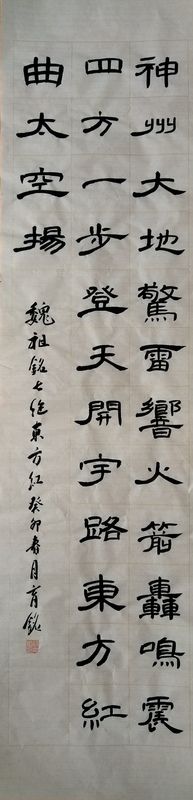 神州大地驚雷響火箭轟鳴震
四方一步登天開宇路東方紅
曲太空揚
魏祖銘七絕東方紅癸卯春月育銘